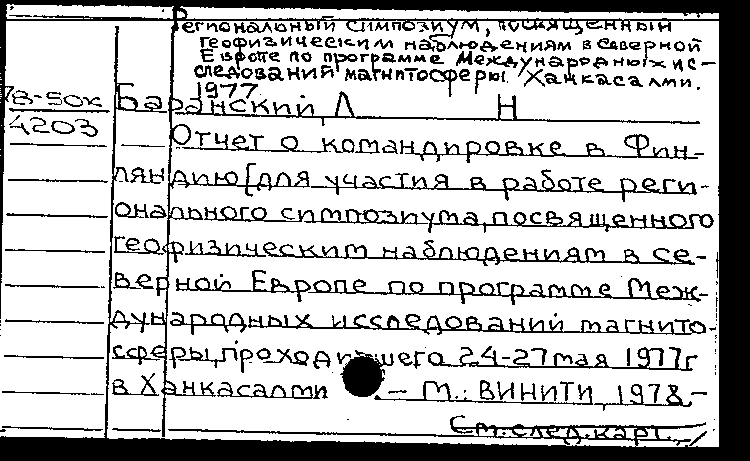 Региональный симпозиум, посвященный
геофизическим наблюдениям в Северной
Европе по программе Международных ис-
следований магнитосферы. Ханкасалми.
1977.
78-50к Баранский, Л Н
4203
Отчет о командировке в Фин-
ляндию [для участия в работе реги-
онального симпозиума, посвященного
геофизическим наблюдениям в Се-
верной Европе по программе Меж-
дународных исследований магнито-
сферы, проходившего 24-27 мая 1977г
в Ханкасалми .- М.: ВИНИТИ, 1978.-
См. след. карт.